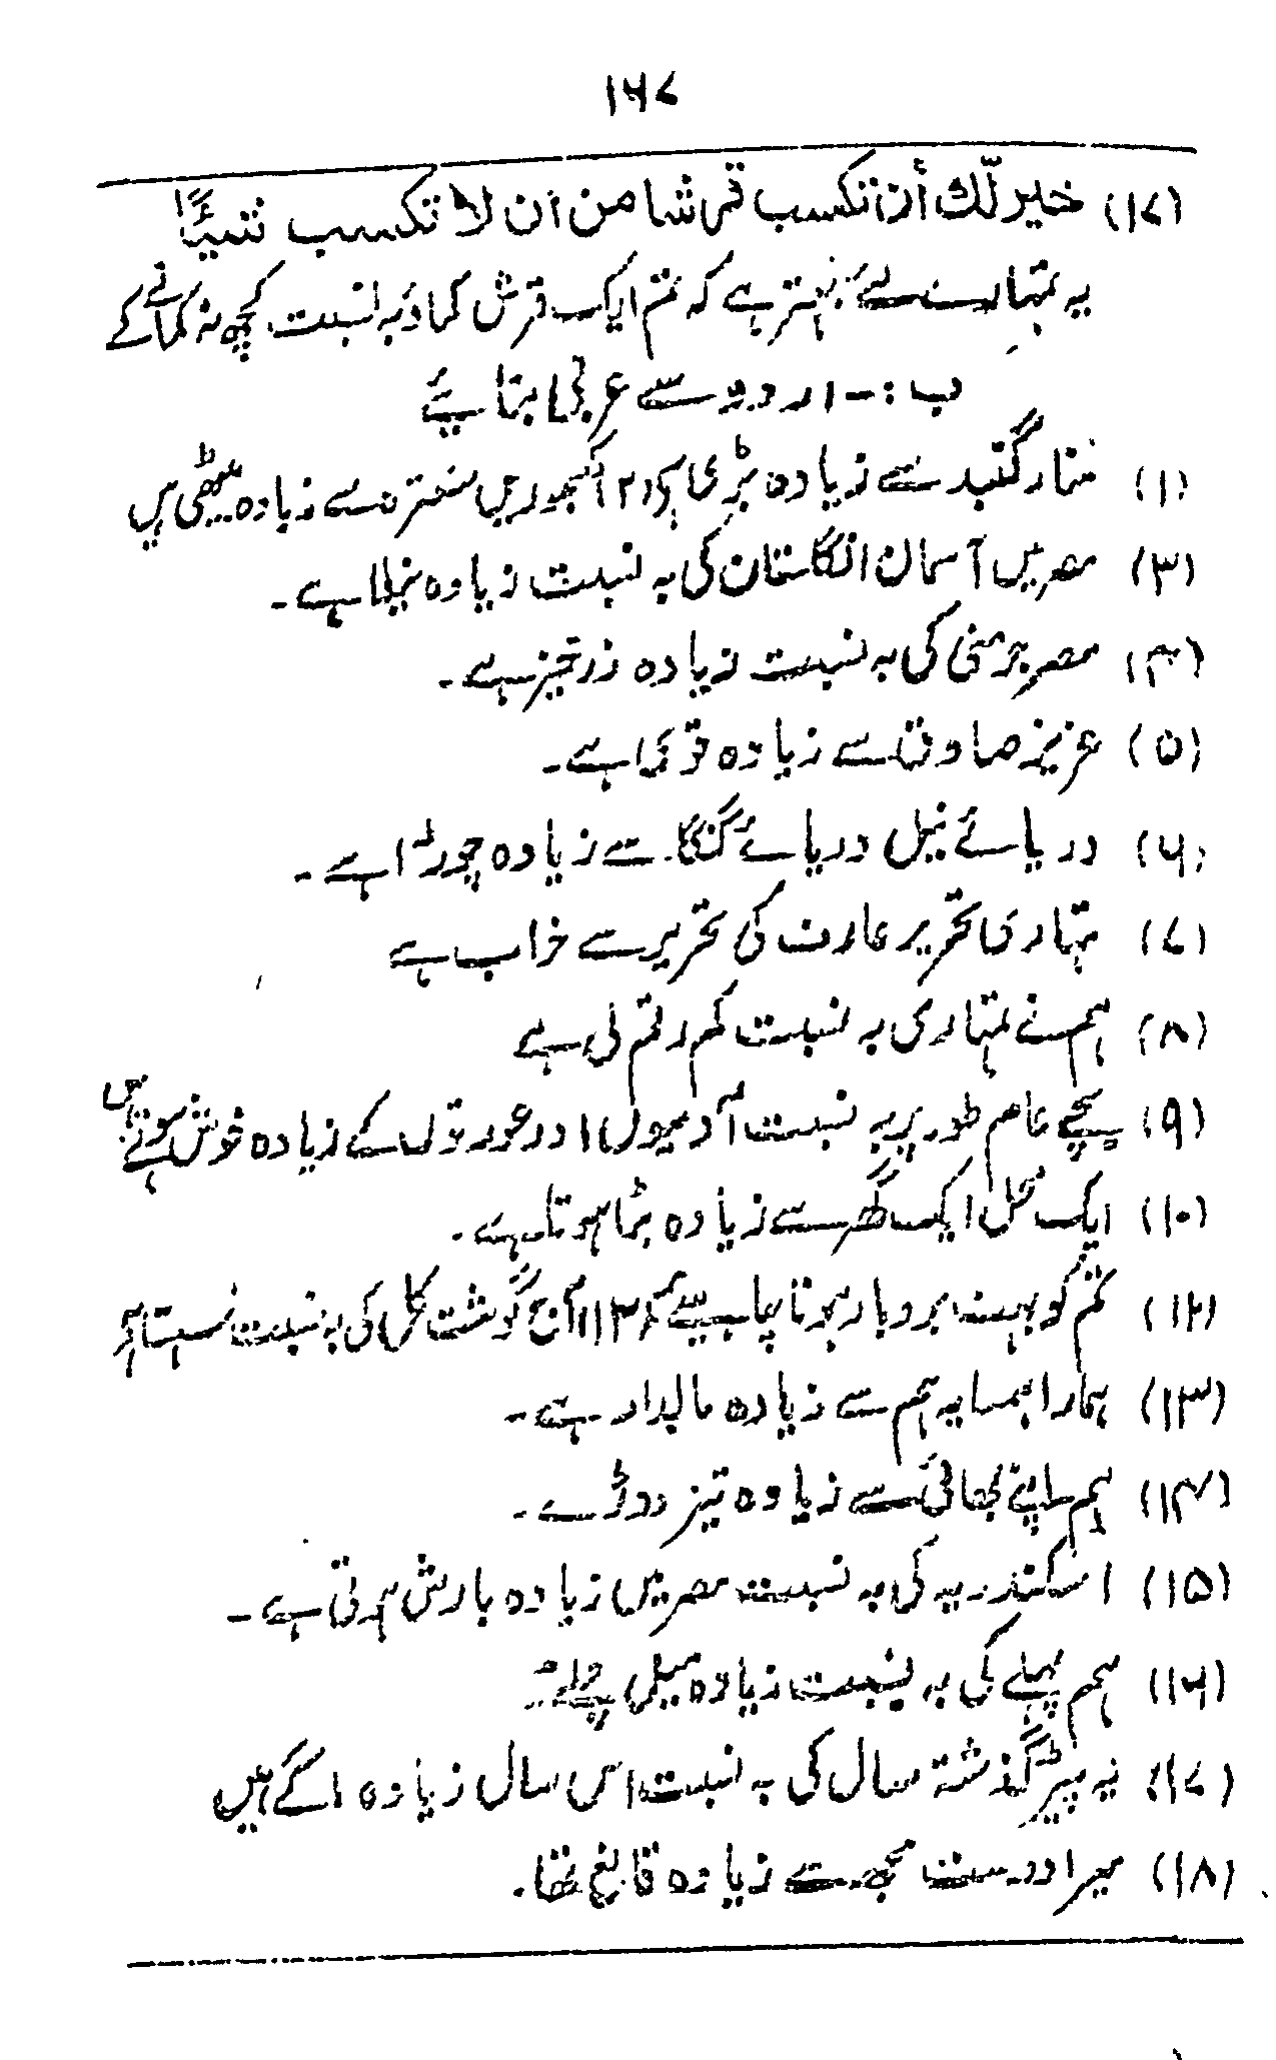 ۱۶۷
(۱۷) خیر لّك أن تكسب قرشا من ان لا تكسب شیئًا
یہ تمہارے لئے بہتر ہے کہ تم ایک قرش کماؤ بہ نسبت کچھ نہ کمانے کے
ب :- اردو سے عربی بنایئے
(۱) منار گنبد سے زیادہ بڑی ہے (۲) کھجوریں سنترہ سے زیادہ میٹھی ہیں
(۳) مصر میں آسمان انگلستان کی بہ نسبت زیادہ نیلا ہے ۔
(۴) مصر جرمنی کی بہ نسبت زیادہ زرخیز ہے ۔
(۵) عزیز صادق سے زیادہ قوی ہے ۔
(۶) دریائے نیل دریائے گنگا سے زیادہ چوڑا ہے ۔
(۷) تمہاری تحریر عارف کی تحریر سے خراب ہے
(۸) ہم نے تمہاری بہ نسبت کم رقم لی ہے
(۹) بچے عام طور پر بہ نسبت آدمیوں اور عورتوں کے زیادہ خوش ہوتے ہیں
(۱۰) ایک محل ایک گھر سے زیادہ بڑا ہوتا ہے ۔
(۱۲) تم کو بہت بردبار ہونا چاہیئے (۱۳) آج گوشت کل کی بہ نسبت سستا ہے
(۱۳) ہمارا ہمسایہ ہم سے زیادہ مالدار ہے ۔
(۱۴) ہم اپنے بھائی سے زیادہ تیز دوڑے ۔
(۱۵) اسکندریہ کی بہ نسبت مصر میں زیادہ بارش ہوتی ہے ۔
(۱۶) ہم پہلے کی بہ نسبت زیادہ میل چلے
(۱۷) یہ پیڑ گذشتہ سال کی بہ نسبت اس سال زیادہ اگے ہیں
(۱۸) میرا دوست مجھ سے زیادہ قانع تھا ۔